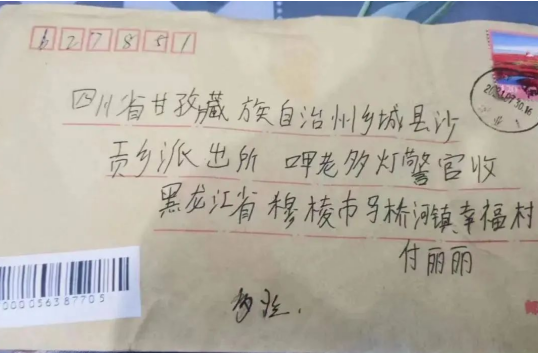 627851
四川省甘孜藏族自治州乡城县沙
贡乡派出所 呷老多灯警官收
黑龙江省穆棱市马桥河镇幸福村
付丽丽
000056387705